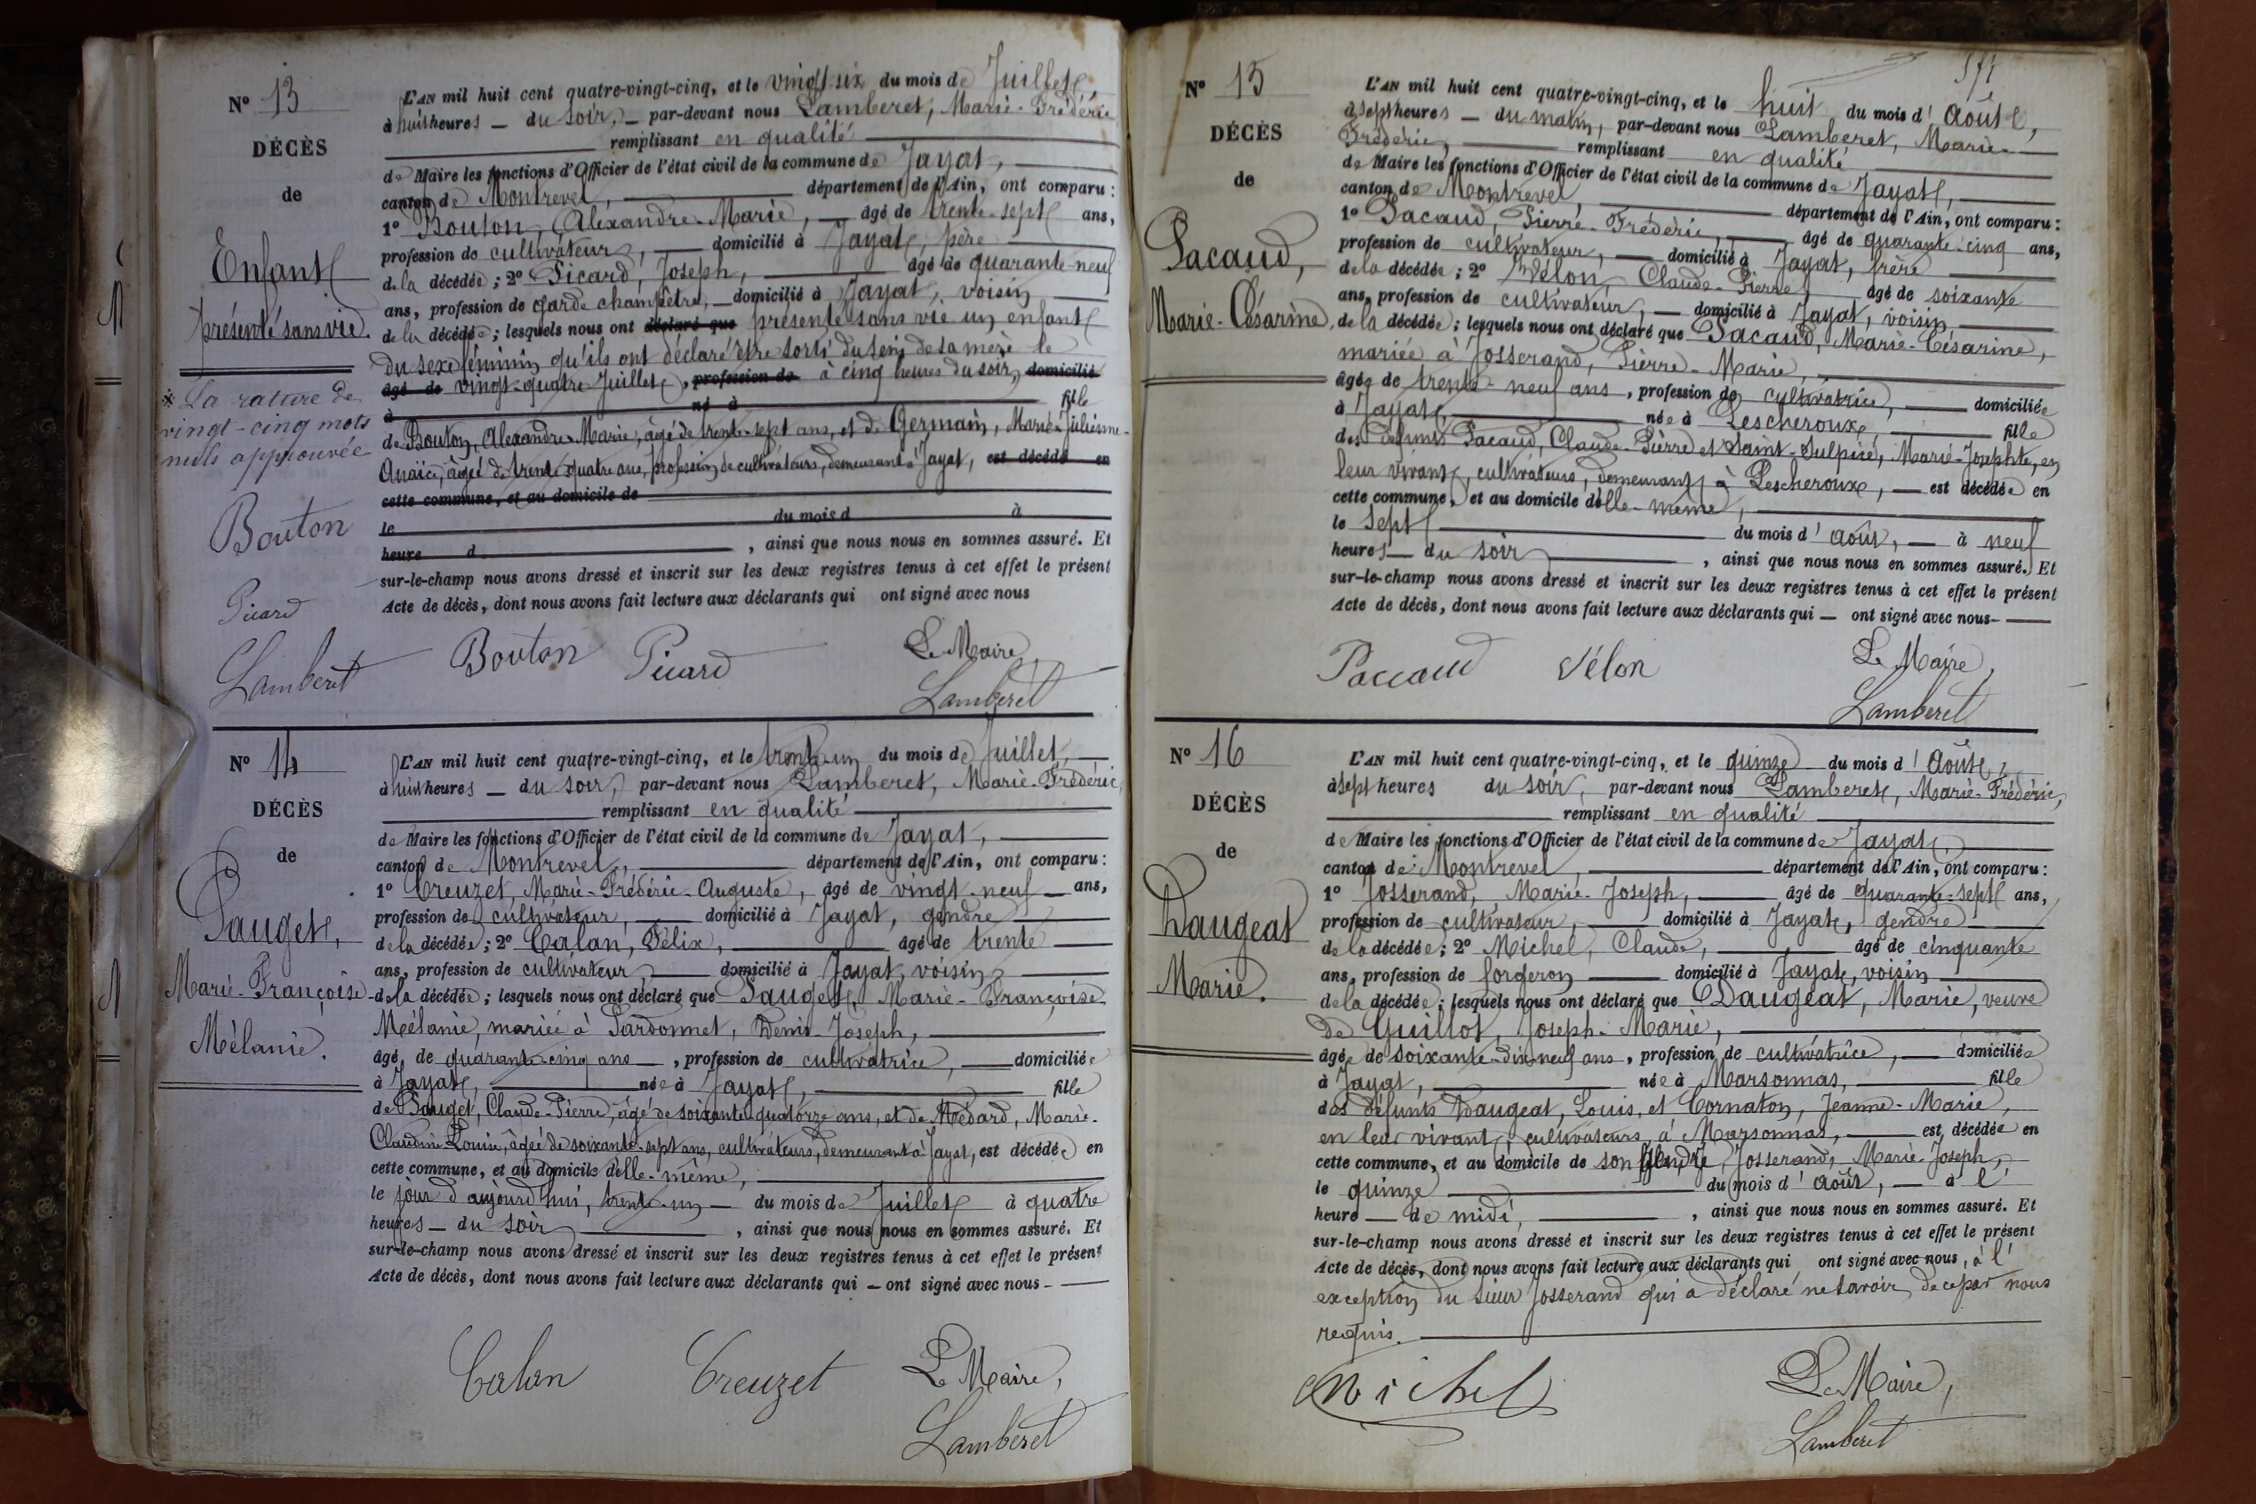 N° 13
DÉCÈS
de
Enfant
présenté sans vie.
* La rature de
vingt-cinq mots
nuls approuvée
Bouton
Picard
Lamberet
L'AN mil huit cent quatre-vingt-cinq, et le vingt-six du mois de Juillet,
à huit heures — du soir, — par-devant nous Lamberet, Marie-Frédéric
remplissant en qualité
de Maire les fonctions d'Officier de l'état civil de la commune de Jayat,
canton de Montrevel, département de l'Ain, ont comparu :
1° Bouton, Alexandre-Marie, — âgé de trente-sept ans,
profession de cultivateur, — domicilié à Jayat, père
de la décédée ; 2° Picard, Joseph, âgé de quarante-neuf
ans, profession de garde champêtre, — domicilié à Jayat, voisin
de la décédée ; lesquels nous ont déclaré que présenté sans vie un enfant
du sexe féminin qu'ils ont déclaré être sorti du sein de sa mère le
âgé de vingt-quatre Juillet, profession de à cinq heures du soir, domicilié
à né à fille
de Bouton, Alexandre-Marie, âgé de trente-sept ans, et de Germain, Marie-Julienne-
Anaïce, âgée de trente-quatre ans, profession de cultivateurs, demeurant à Jayat, est décédé en
cette commune, et au domicile de
le du mois d à
heure d , ainsi que nous nous en sommes assuré. Et
sur-le-champ nous avons dressé et inscrit sur les deux registres tenus à cet effet le présent
Acte de décès, dont nous avons fait lecture aux déclarants qui ont signé avec nous
Bouton Picard Le Maire,
Lamberet
N° 14
DÉCÈS
de
Pauget,
Marie-Françoise-
Mélanie.
L'AN mil huit cent quatre-vingt-cinq, et le trente-un du mois de Juillet,
à huit heures — du soir, par-devant nous Lamberet, Marie-Frédéric,
remplissant en qualité
de Maire les fonctions d'Officier de l'état civil de la commune de Jayat,
canton de Montrevel, département de l'Ain, ont comparu :
1° Creuzet, Marie-Frédéric-Auguste, âgé de vingt-neuf — ans,
profession de cultivateur, — domicilié à Jayat, gendre
de la décédée ; 2° Calan, Félix, âgé de trente
ans, profession de cultivateur, domicilié à Jayat, voisin
de la décédée ; lesquels nous ont déclaré que Pauget, Marie-Françoise-
Mélanie, mariée à Pardonnet, Denis-Joseph,
âgée de quarante-cinq ans —, profession de cultivatrice, — domiciliée
à Jayat, née à Jayat, fille
de Pauget, Claude-Pierre, âgé de soixante-quatorze ans, et de Médard, Marie-
Claudine-Louise, âgée de soixante-sept ans, cultivateurs, demeurant à Jayat, est décédée en
cette commune, et au domicile d'elle-même,
le jour d'aujourd'hui, trente-un — du mois de Juillet à quatre
heures — du soir , ainsi que nous nous en sommes assuré. Et
sur-le-champ nous avons dressé et inscrit sur les deux registres tenus à cet effet le présent
Acte de décès, dont nous avons fait lecture aux déclarants qui — ont signé avec nous —
Calan Creuzet Le Maire,
Lamberet
N° 15
DÉCÈS
de
Pacaud,
Marie-Césarine,
L'AN mil huit cent quatre-vingt-cinq, et le huit du mois d'Août,
à sept heures — du matin, par-devant nous Lamberet, Marie-
Frédéric, remplissant en qualité
de Maire les fonctions d'Officier de l'état civil de la commune de Jayat,
canton de Montrevel, département de l'Ain, ont comparu :
1° Pacaud, Pierre-Frédéric, âgé de quarante-cinq ans,
profession de cultivateur, — domicilié à Jayat, frère
de la décédée ; 2° Vélon, Claude-Pierre, âgé de soixante
ans, profession de cultivateur, — domicilié à Jayat, voisin
de la décédée ; lesquels nous ont déclaré que Pacaud, Marie-Césarine,
mariée à Josserand, Pierre-Marie,
âgée de trente-neuf ans, profession de cultivatrice, — domiciliée
à Jayat, née à Lescheroux, fille
des défunts Pacaud, Claude-Pierre et Saint-Sulpice, Marie-Josephte, en
leur vivant, cultivateurs, demeurant à Lescheroux, — est décédée en
cette commune, et au domicile d'elle-même,
le sept du mois d'août, — à neuf
heures — du soir , ainsi que nous nous en sommes assuré. Et
sur-le-champ nous avons dressé et inscrit sur les deux registres tenus à cet effet le présent
Acte de décès, dont nous avons fait lecture aux déclarants qui — ont signé avec nous —
Paccaud Vélon Le Maire,
Lamberet
N° 16
DÉCÈS
de
Daugeat
Marie.
L'AN mil huit cent quatre-vingt-cinq, et le quinze du mois d'Août,
à sept heures du soir, par-devant nous Lamberet, Marie-Frédéric,
remplissant en qualité
de Maire les fonctions d'Officier de l'état civil de la commune de Jayat,
canton de Montrevel, département de l'Ain, ont comparu :
1° Josserand, Marie-Joseph, âgé de quarante-sept ans,
profession de cultivateur, domicilié à Jayat, gendre
de la décédée ; 2° Michel, Claude, âgé de cinquante
ans, profession de forgeron domicilié à Jayat, voisin
de la décédée ; lesquels nous ont déclaré que Daugeat, Marie, veuve
de Guillot, Joseph-Marie,
âgée de soixante-dix-neuf ans, profession de cultivatrice, — domiciliée
à Jayat, née à Marsonnas, fille
des défunts Daugeat, Louis, et Cornaton, Jeanne-Marie,
en leur vivant, cultivateurs à Marsonnas, est décédée en
cette commune, et au domicile de son gendre, Josserand, Marie-Joseph,
le quinze du mois d'août, — à l'
heure — de midi, , ainsi que nous nous en sommes assuré. Et
sur-le-champ nous avons dressé et inscrit sur les deux registres tenus à cet effet le présent
Acte de décès, dont nous avons fait lecture aux déclarants qui ont signé avec nous, à l'
exception du sieur Josserand qui a déclaré ne savoir de ce par nous
requis.
Michel Le Maire,
Lamberet